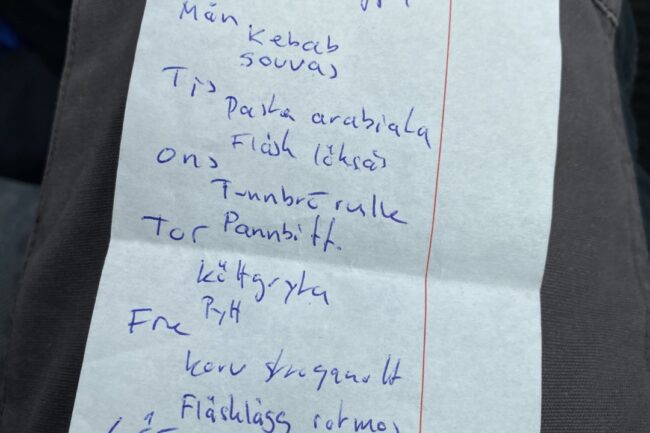 Mån
Kebab
souvas
Tis
Pasta arabiata
Fläsk löksås
Ons
Tunnbrö rulle
Pannbiff.
Tor
köttgryta
Pytt
Fre
korv stroganoff
Fläsklägg rotmos